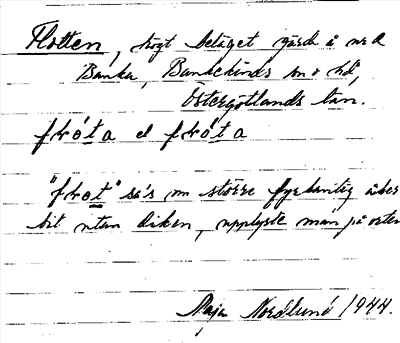 Flotten, högt beläget gärde å
Banka, Bankekinds sn o hd,
Östergötlands län.
fróta el fróta
"frot" sä's om större fyrkantig åker
bit utan diken, upplyste man på orten
Maja Nordlund 1944.